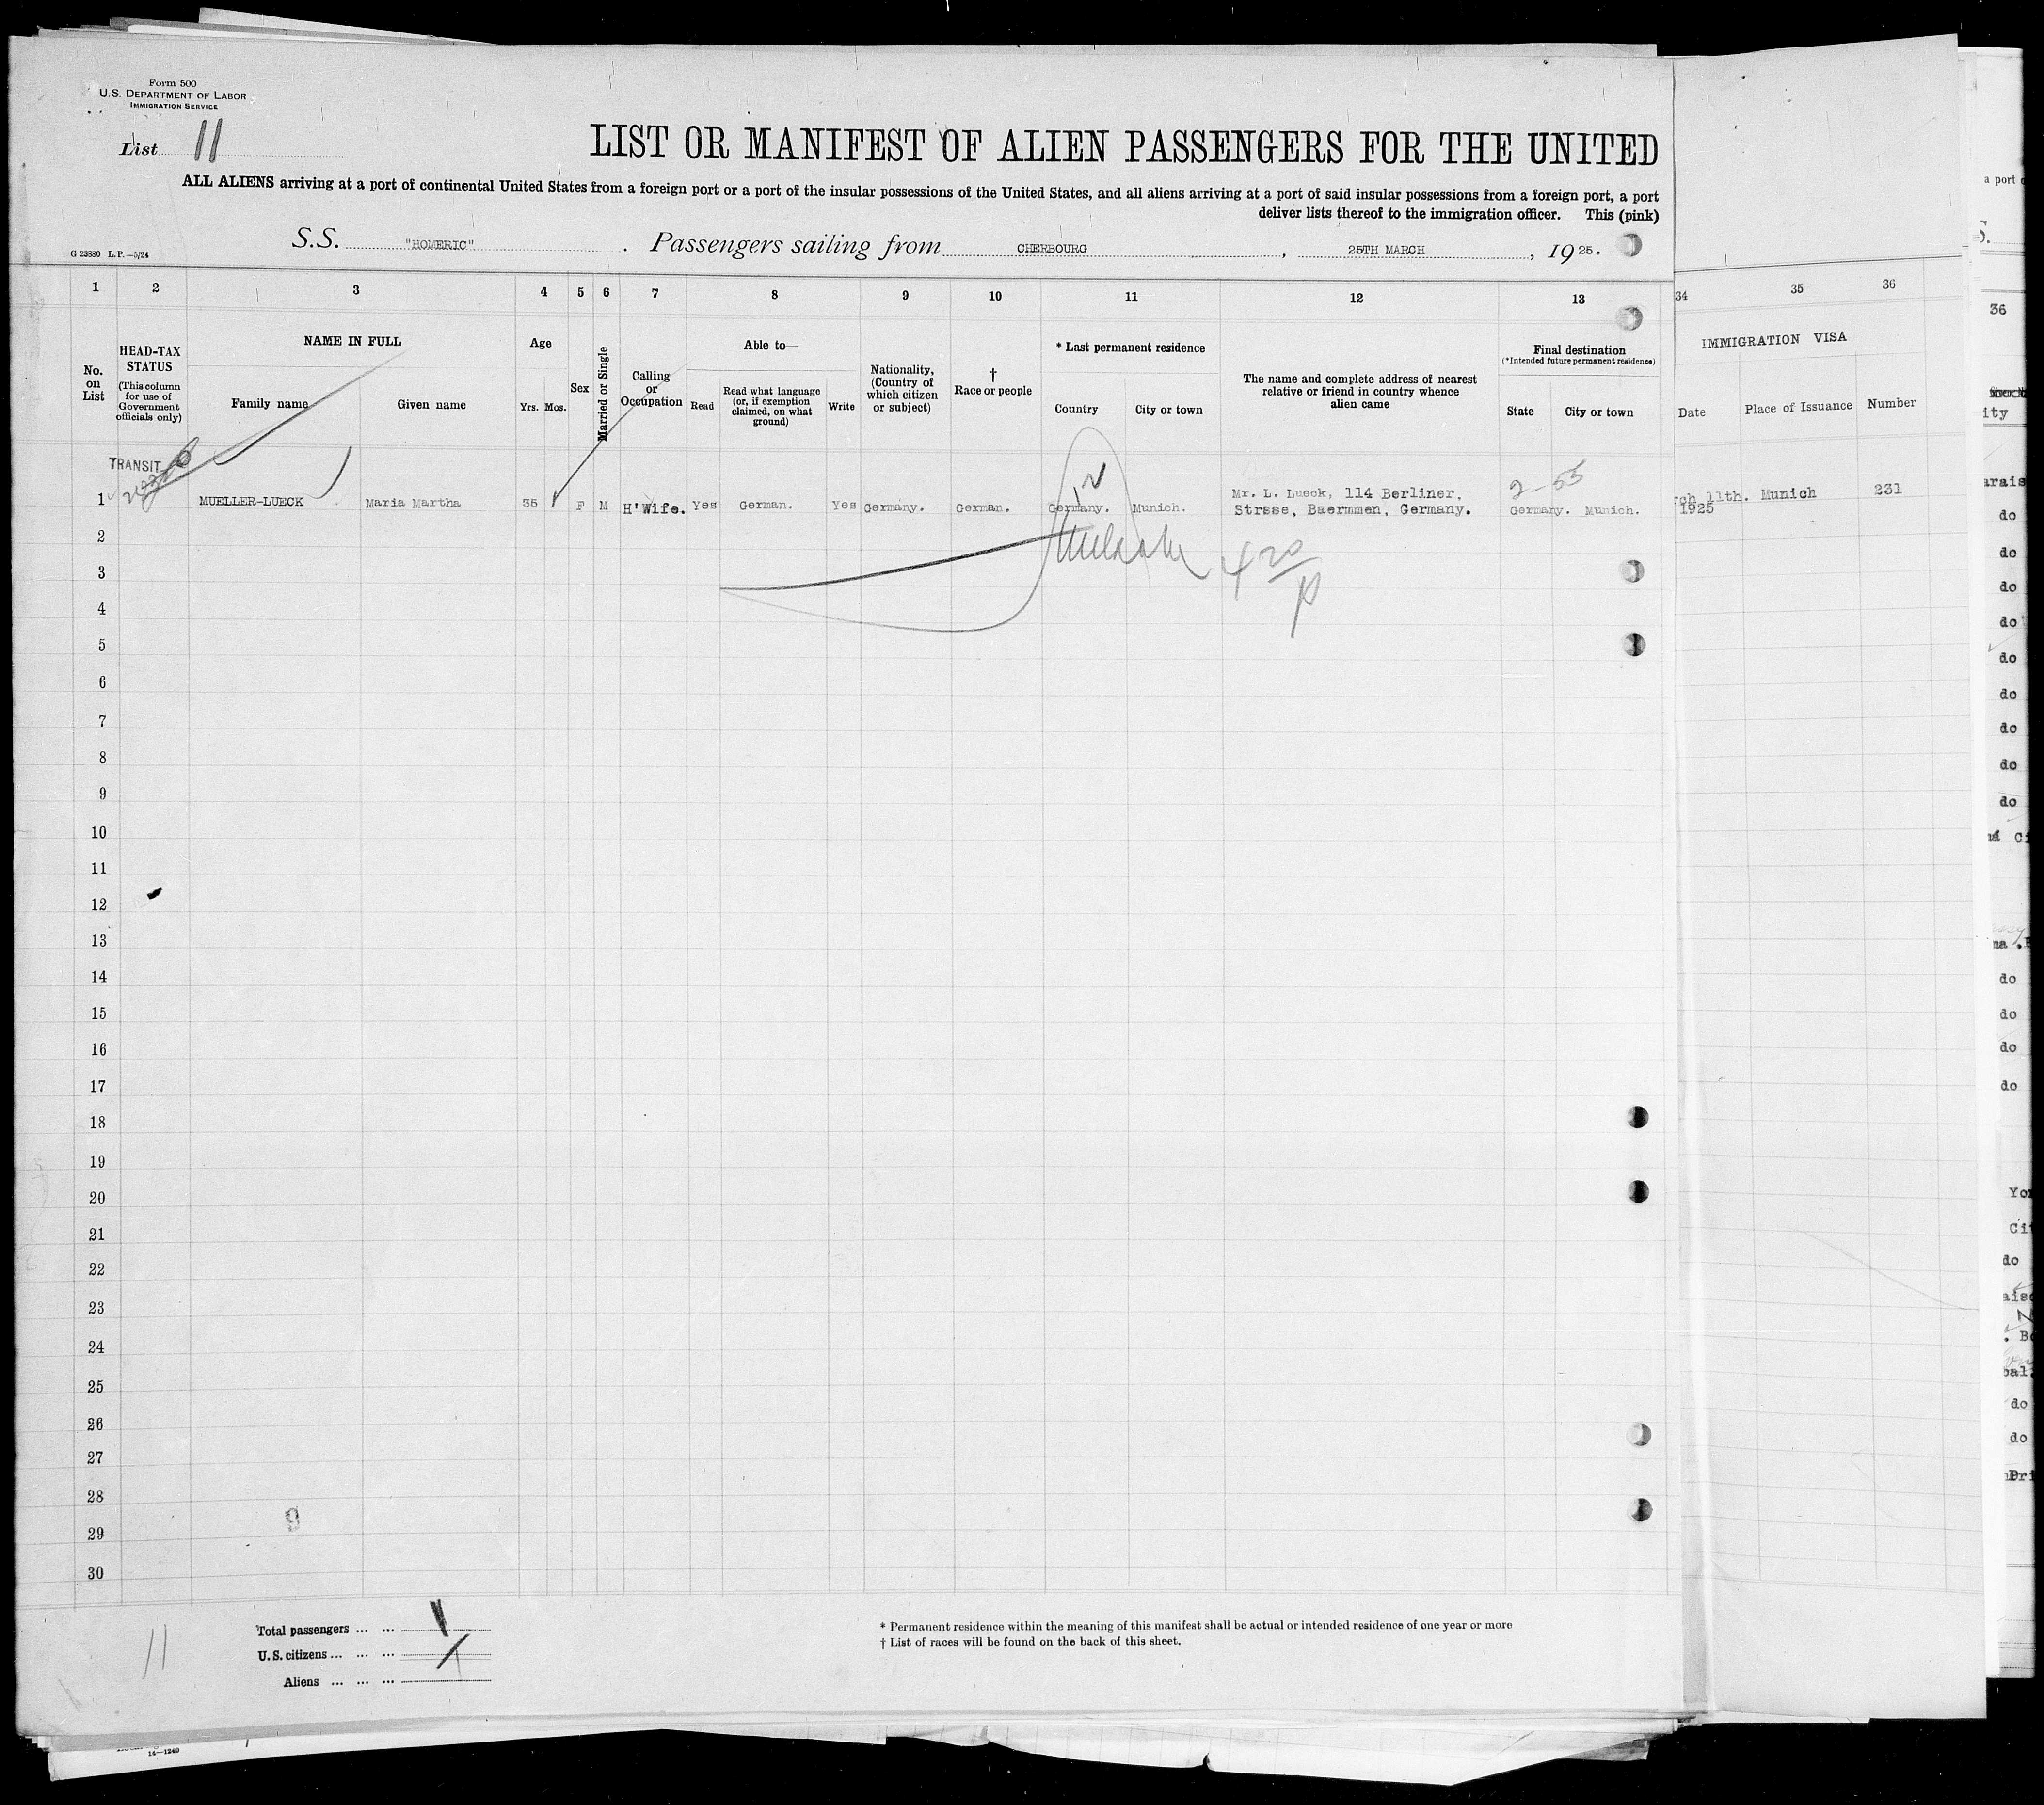 Form 500
U.S. DEPARTMENT OF LABOR
IMMIGRATION SERVICE
List 11
LIST OR MANIFEST OF ALIEN PASSENGERS FOR THE UNITED
ALL ALIENS arriving at a port of continental United States from a foreign port or a port of the insular possessions of the United States, and all aliens arriving at a port of said insular possessions from a foreign port, a port
deliver lists thereof to the immigration officer. This (pink)
G 23880 L.P.—5/24
S.S. "HOMERIC" . Passengers sailing from CHERBOURG , 25TH MARCH , 1925.
1 2 3 4 5 6 7 8 9 10 11 12 13 34 35 36
No. on List
HEAD-TAX STATUS
(This column for use of Government officials only)
NAME IN FULL
Family name
Given name
Age
Yrs. Mos.
Sex
Married or Single
Calling or Occupation
Able to—
Read
Read what language (or, if exemption claimed, on what ground)
Write
Nationality, (Country of which citizen or subject)
† Race or people
* Last permanent residence
Country
City or town
The name and complete address of nearest relative or friend in country whence alien came
Final destination
(*Intended future permanent residence)
State
City or town
IMMIGRATION VISA
Date
Place of Issuance
Number
TRANSIT
2-55
1 MUELLER-LUECK Maria Martha 35 F M H'Wife. Yes German. Yes Germany. German. Germany. Munich. Mr. L. Lueck, 114 Berliner, Strsse, Baermmen, Germany. Germany. Munich. rch 11th. 1925 Munich 231
2
3
4
5
6
7
8
9
10
11
12
13
14
15
16
17
18
19
20
21
22
23
24
25
26
27
28
29
30
9
11
Total passengers ... ...
U.S. citizens ... ... ...
Aliens ... ... ...
* Permanent residence within the meaning of this manifest shall be actual or intended residence of one year or more
† List of races will be found on the back of this sheet.
14—1240
a port
36
ity
do
do
do
do
do
do
do
do
do
do
do
do
do
do
do
do